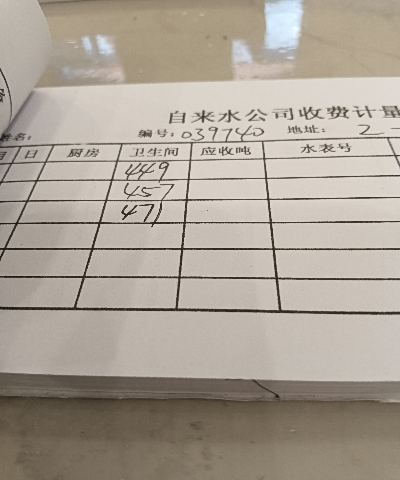 自来水公司收费计量
姓名: 编号: 039740 地址: 2-
月 日 厨房 卫生间 应收吨 水表号
449
457
471